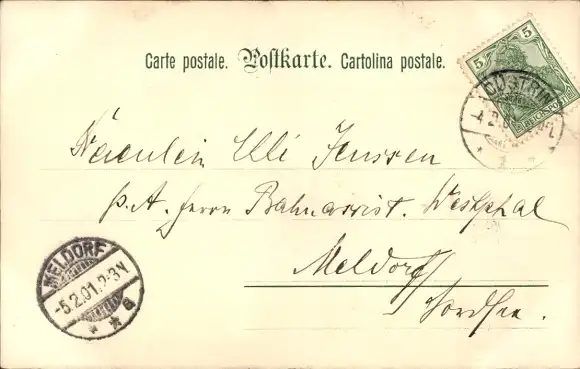 Carte postale. Postkarte. Cartolina postale.
5 5
REICHSPOST
CÜSTRIN
Fräulein Elli Jenssen
p. A. Herrn Bahnassist. Westphal
Meldorf
Nordsee.
MELDORF
-5.2.01.2-3N